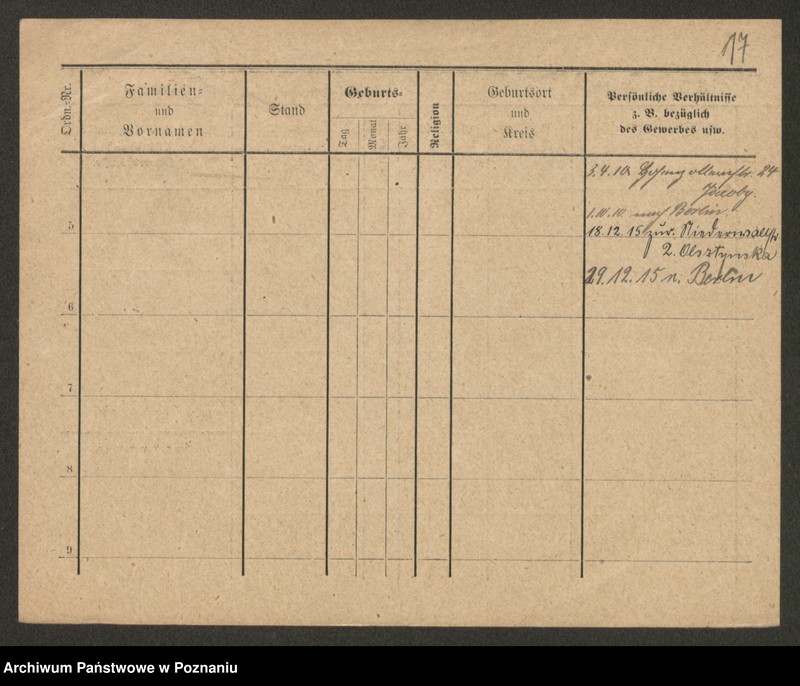 117
Ordn.-Nr.
Familien-
und
Vornamen
Stand
Geburts-
Tag
Monat
Jahr
Religion
Geburtsort
und
Kreis
Persönliche Verhältnisse
z. B. bezüglich
des Gewerbes usw.
3.4.10. 24
Jacoby.
1.10.10. nach Berlin.
5
18.12.15 zur. Niederwallstr.
2. Olsztynska
29.12.15 n. Berlin
6
7
8
9
Archiwum Państwowe w Poznaniu